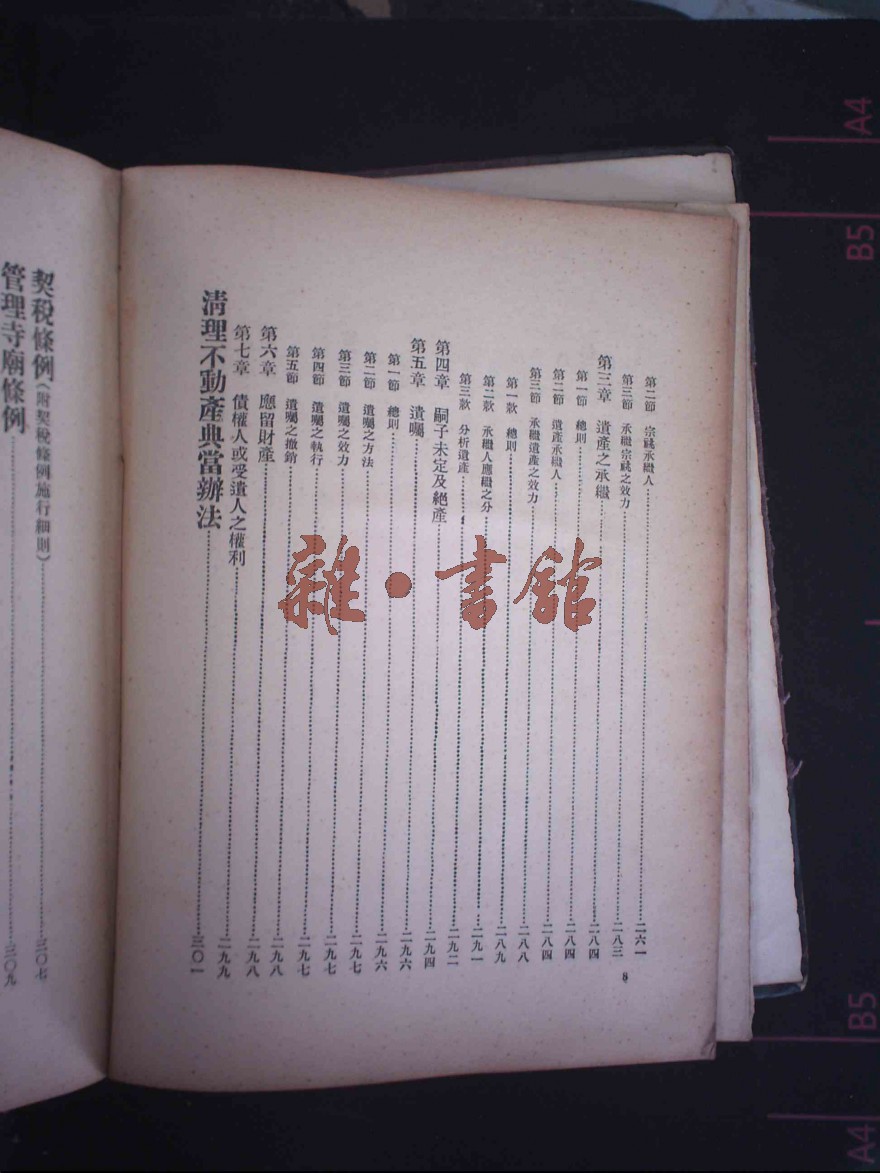 第二節　宗祧承繼人……二六一
第三節　承繼宗祧之效力……二八三
第三章　遺產之承繼……二八四
第一節　總則……二八四
第二節　遺產承繼人……二八四
第三節　承繼遺產之效力……二八八
第一款　總則……二八九
第二款　承繼人應繼之分……二九一
第三款　分析遺產……二九二
第四章　嗣子未定及絕產……二九四
第五章　遺囑……二九六
第一節　總則……二九六
第二節　遺囑之方法……二九七
第三節　遺囑之效力……二九七
第四節　遺囑之執行……二九七
第五節　遺囑之撤銷……二九八
第六章　應留財產……二九八
第七章　債權人或受遺人之權利……二九九
清理不動產典當辦法……三〇一
8
契稅條例（附契稅條例施行細則）……三〇七
管理寺廟條例……三〇九
雜·書館
A4
B5
B5
A4